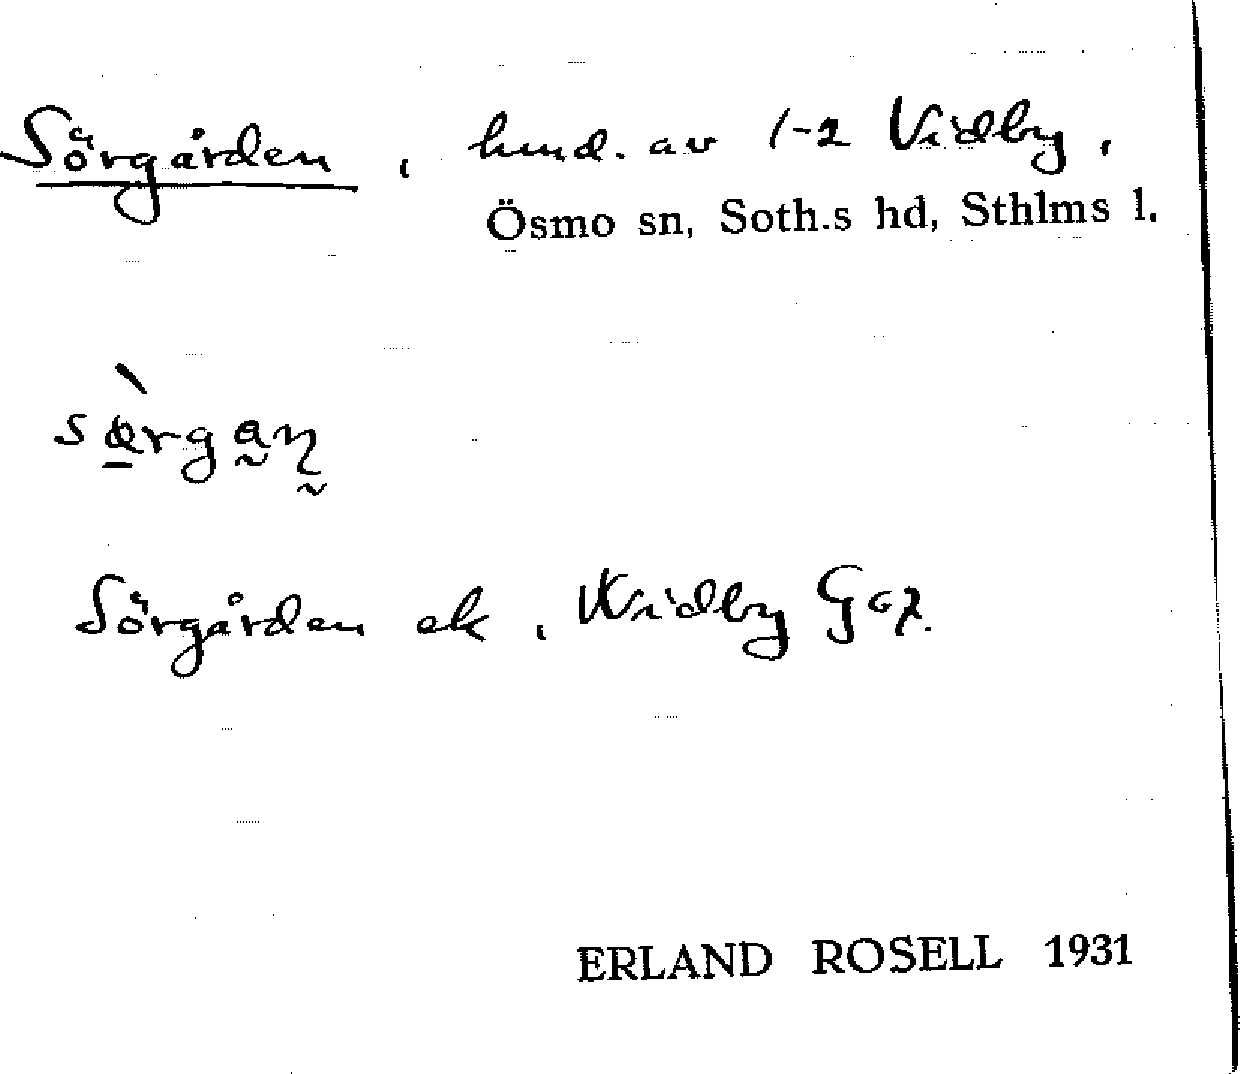 Sörgården, hmd. av 1-2 Vidby,
Ösmo sn, Soth.s hd, Sthlms l.
Sörgården ek, Vidby
ERLAND ROSELL 1931